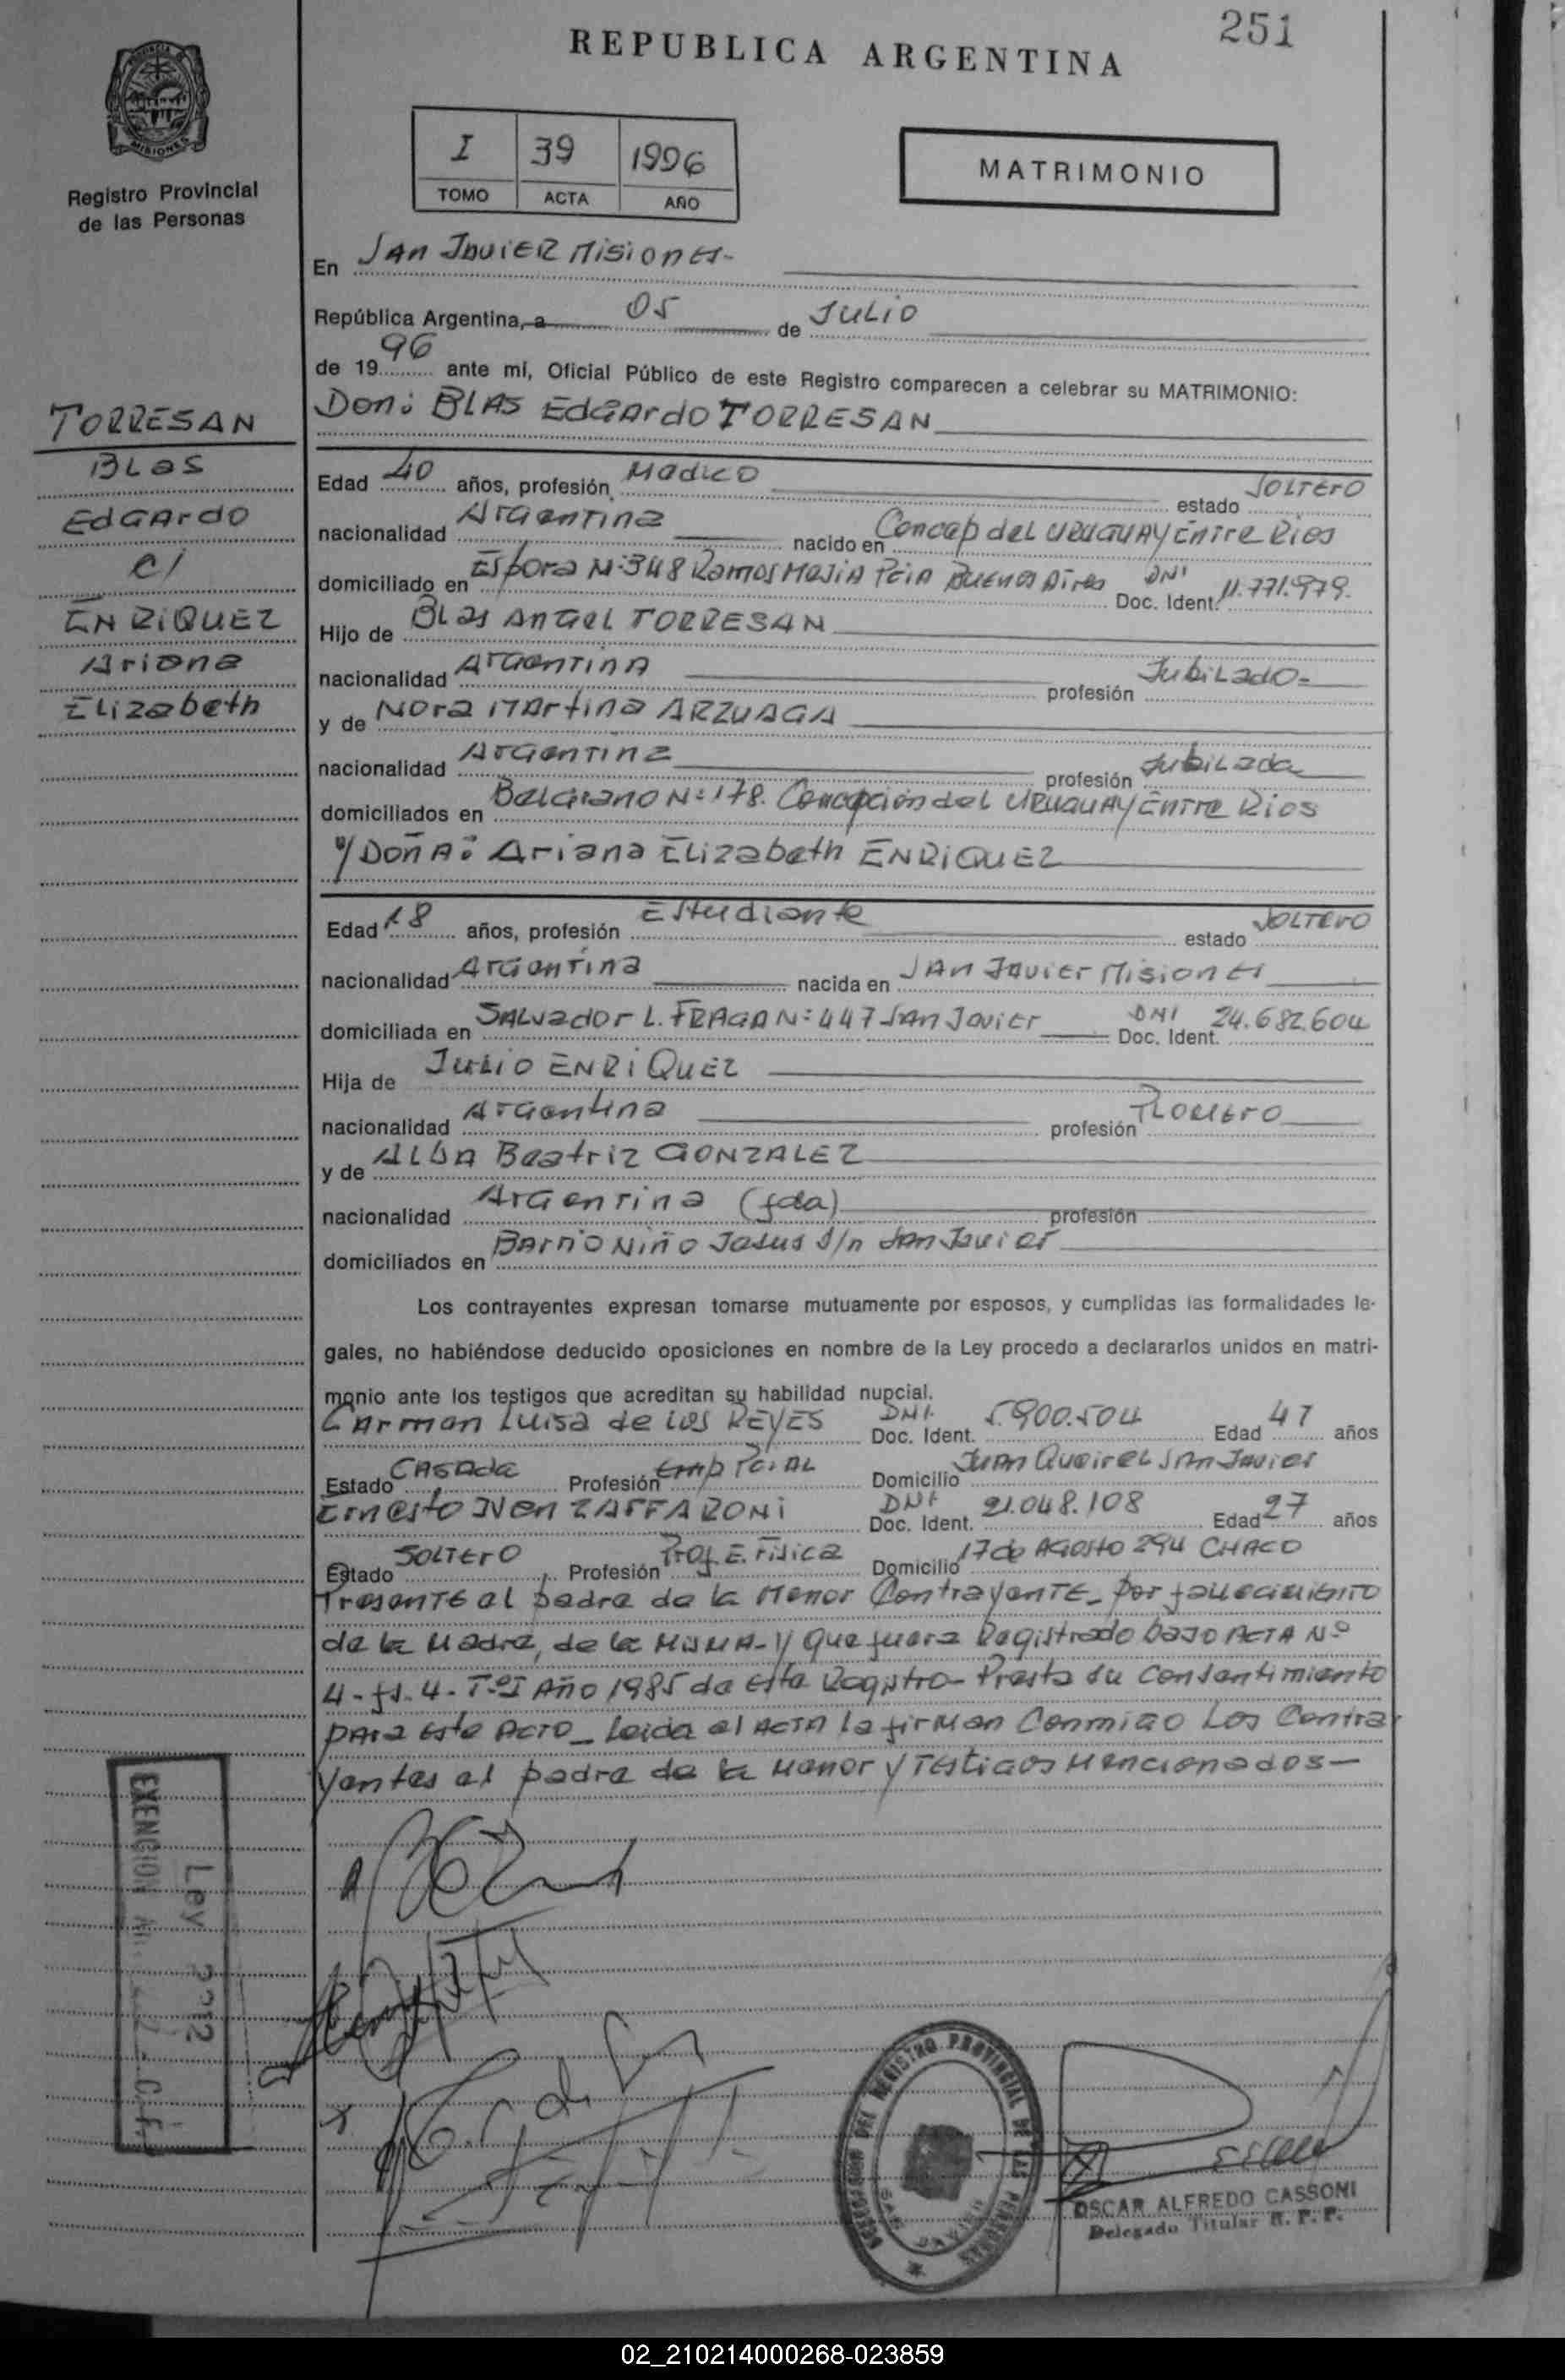 251
REPUBLICA ARGENTINA
MISIONES
Registro Provincial
de las Personas
I 39 1996
TOMO ACTA AÑO
MATRIMONIO
En SAN JAVIER Misiones-
República Argentina, a 05 de JULIO
de 1996 ante mí, Oficial Público de este Registro comparecen a celebrar su MATRIMONIO:
Don: BLAS EdGArdo TORRESAN
TORRESAN
BLas
EdGArdo
C/
ENRIQUEZ
Ariana
Elizabeth
Edad 40 años, profesión Medico estado SOLTERO
nacionalidad Argentina nacido en Concep del URUGUAY Entre Rios
domiciliado en Espora N:348 Ramos MeJIA Pcia Buenos Aires DNI Doc. Ident. 11.771.979.
Hijo de BLas ANGEL TORRESAN
nacionalidad ArGentinA profesión JubiLado-
y de Nora MArtina ARZUAGA
nacionalidad ArGentina profesión JubiLada
domiciliados en BelGrano N:178. Concepción del URUGUAY Entre Rios
y DoñA: Ariana Elizabeth ENRIQUEZ
Edad 18 años, profesión Estudiante estado SOLTERO
nacionalidad ArGentina nacida en SAN Javier Misiones
domiciliada en SALvador L. FRAGA N:447 SAN Javier DNI Doc. Ident. 24.682.604
Hija de JULIO ENRIQUEZ
nacionalidad ArGentina profesión PLOMero
y de ALBA Beatriz GONZALEZ
nacionalidad ArGentina (fda) profesión
domiciliados en BArrio Niño Jesus S/n San Javier
Los contrayentes expresan tomarse mutuamente por esposos, y cumplidas las formalidades le-
gales, no habiéndose deducido oposiciones en nombre de la Ley procedo a declararlos unidos en matri-
monio ante los testigos que acreditan su habilidad nupcial.
CArmen Luisa de los REYES DNI. Doc. Ident. 5.900.504 Edad 47 años
Estado CASAda Profesión Emp Pcial Domicilio Juan Queirel SAN Javier
Ernesto Iven ZAFFARONI DNI Doc. Ident. 21.048.108 Edad 27 años
Estado SOLTERO Profesión Prof. E. Física Domicilio 17 de AGosto 294 CHACO
Presente el padre de la Menor ContrayenTE- por fallecimiento
de la Madre, de la MisMA- y que fuera Registrado bajo ACTA Nº
4- fs. 4- Tº I Año 1985 de este Registro- Presta su consentimiento
para este ACTO- Leida el ACTA la firman Conmigo Los Contra
yentes el padre de la menor y Testigos Mencionados-
EXENCION
Ley
DEL REGISTRO PROVINCIAL DE LAS PERSONAS
SAN JAVIER
OSCAR ALFREDO CASSONI
Delegado Titular R. P. P.
02_210214000268-023859